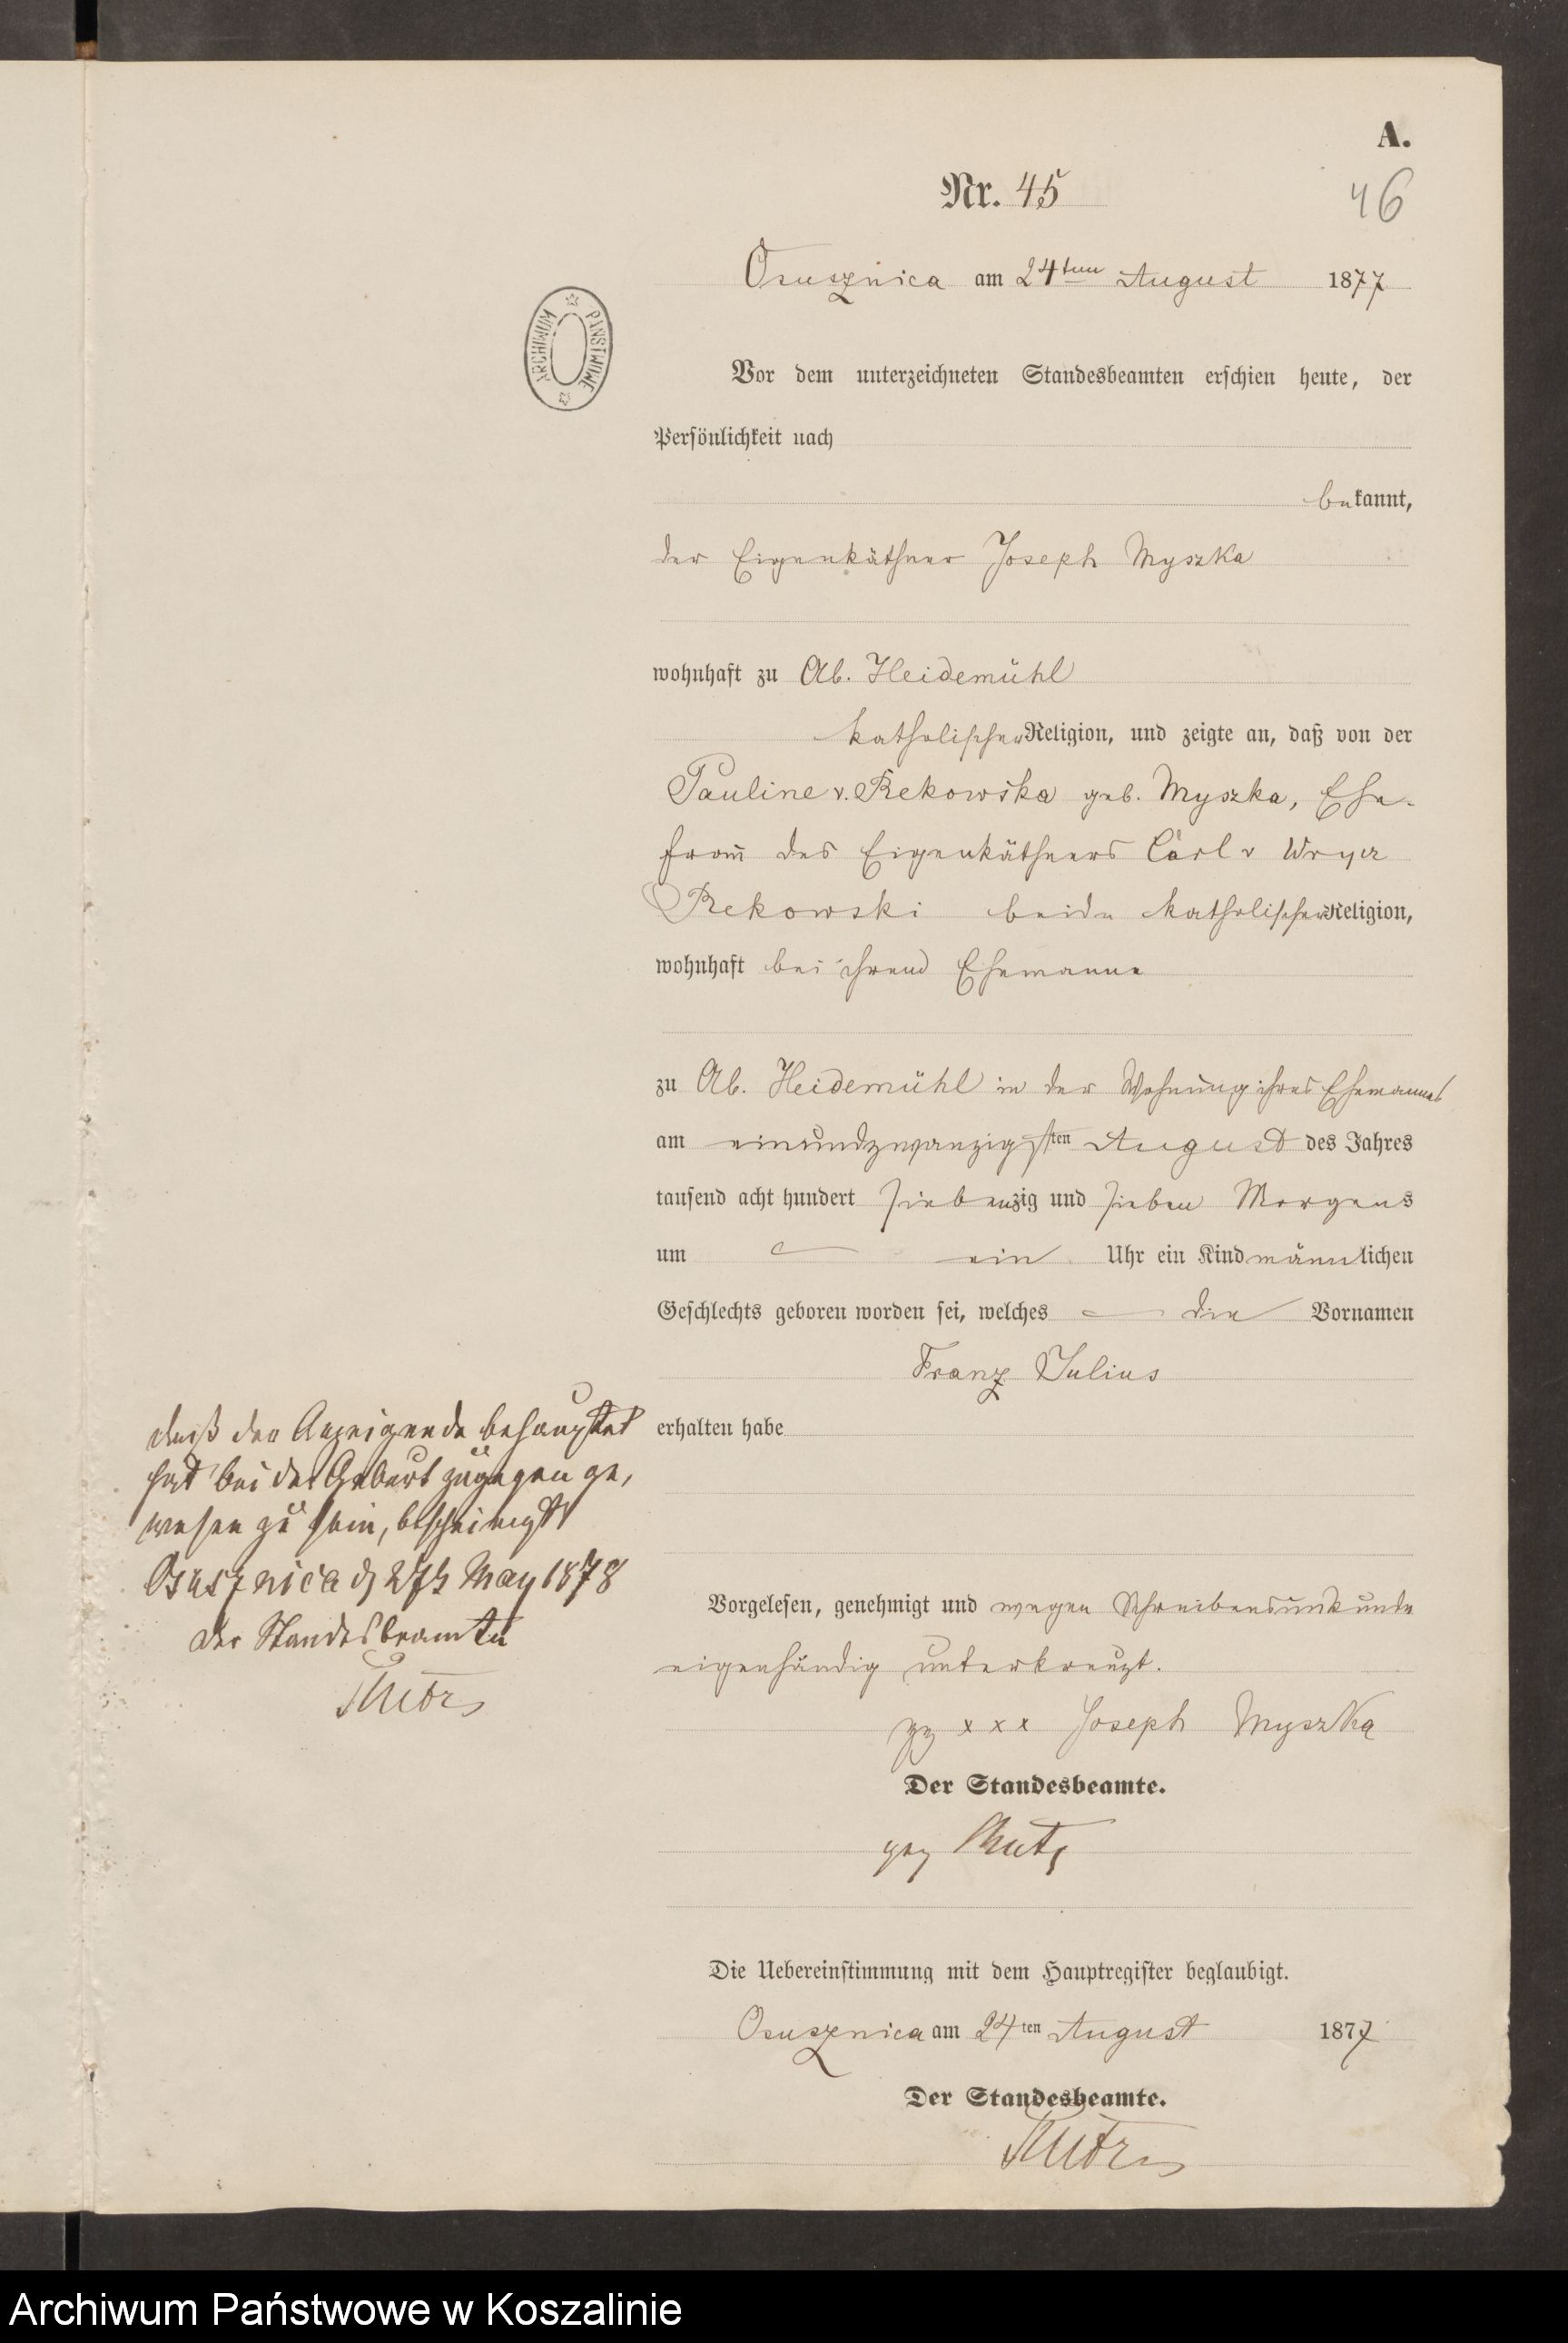 A.
Nr. 45
46
Osusznica am 24ten August 1877
ARCHIWUM PAŃSTWOWE
Vor dem unterzeichneten Standesbeamten erschien heute, der
Persönlichkeit nach
bekannt,
der Eigenkäthner Joseph Myszka
wohnhaft zu Ab. Heidemühl
katholischer Religion, und zeigte an, daß von der
Pauline v. Rekowska geb. Myszka, Ehe-
frau des Eigenkäthners Carl v
Rekowski beide katholischer Religion,
wohnhaft bei ihrem Ehemanne
zu Ab. Heidemühl in der Wohnung ihres Ehemannes
am einundzwanzigsten August des Jahres
tausend acht hundert siebenzig und sieben Morgens
um ein Uhr ein Kind männlichen
Geschlechts geboren worden sei, welches die Vornamen
Franz Julius
erhalten habe
daß der Anzeigende behauptet
hat bei der Geburt zugegen ge,
wesen zu sein, bescheinigt
Osusznica d 27t May 1878
Der Standesbeamte
Vorgelesen, genehmigt und wegen Schreibensunkunde
eigenhändig unterkreuzt.
gz x x x Joseph Myszka
Der Standesbeamte.
gez
Die Uebereinstimmung mit dem Hauptregister beglaubigt.
Osusznica am 24ten August 1877
Der Standesbeamte.
Archiwum Państwowe w Koszalinie